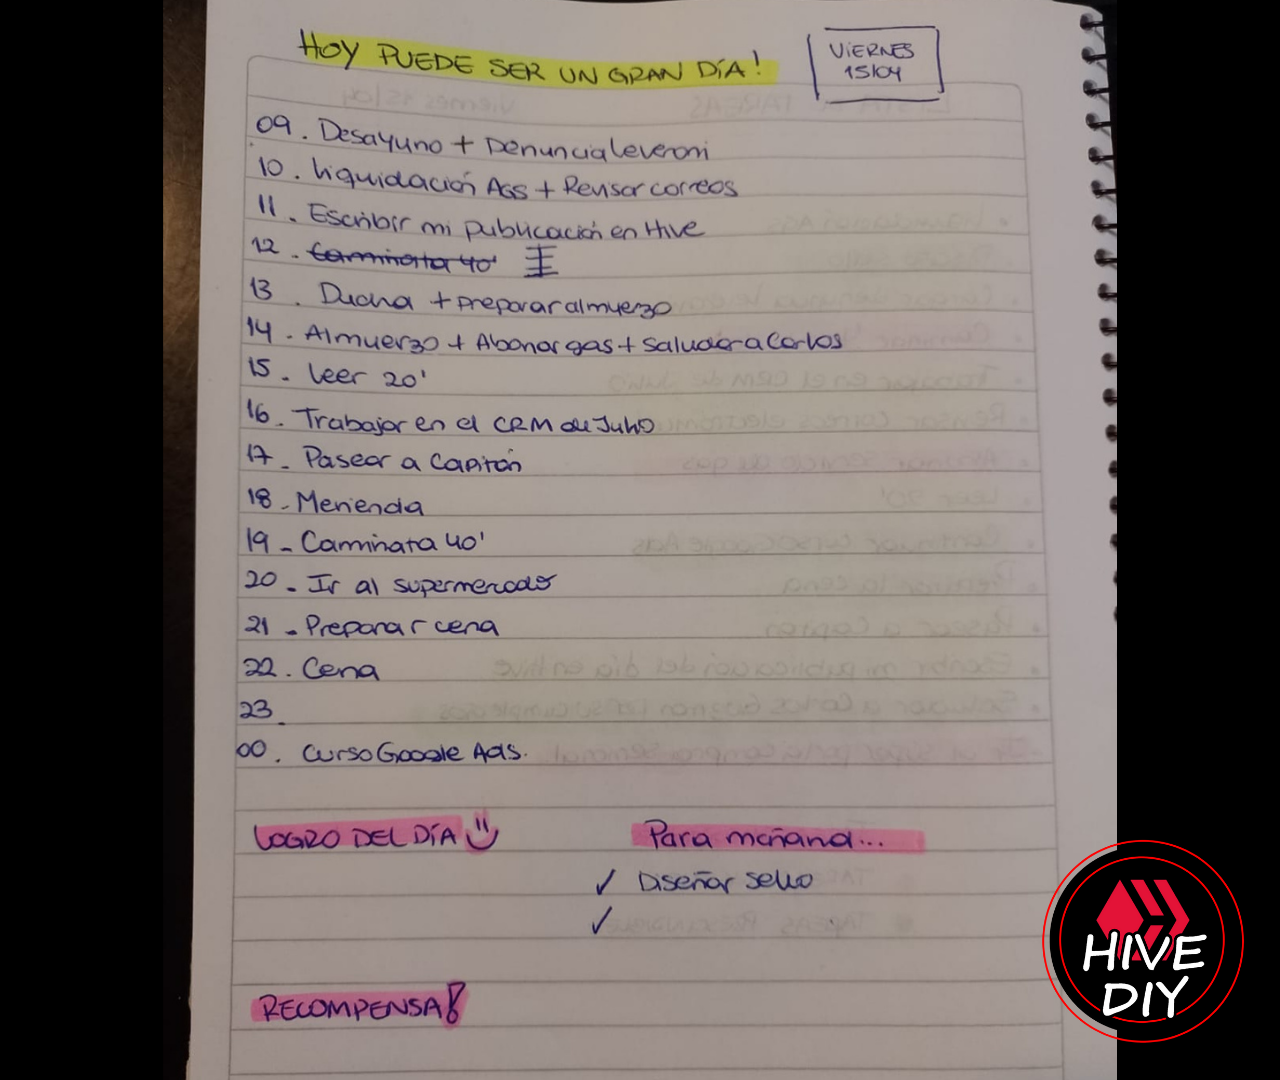 HOY PUEDE SER UN GRAN DÍA!
VIERNES
15/04
09. Desayuno + Denuncia Leveroni
10. Liquidación AGS + Revisar correos
11. Escribir mi publicación en Hive
12. Caminata 40'
13. Ducha + preparar almuerzo
14. Almuerzo + Abonar gas + Saludar a Carlos
15. Leer 20'
16. Trabajar en el CRM de Julio
17. Pasear a Capitán
18. Merienda
19. Caminata 40'
20. Ir al supermercado
21. Preparar cena
22. Cena
23.
00. Curso Google Ads.
LOGRO DEL DÍA
Para mañana...
✓ Diseñar sello
✓
RECOMPENSA!
HIVE
DIY